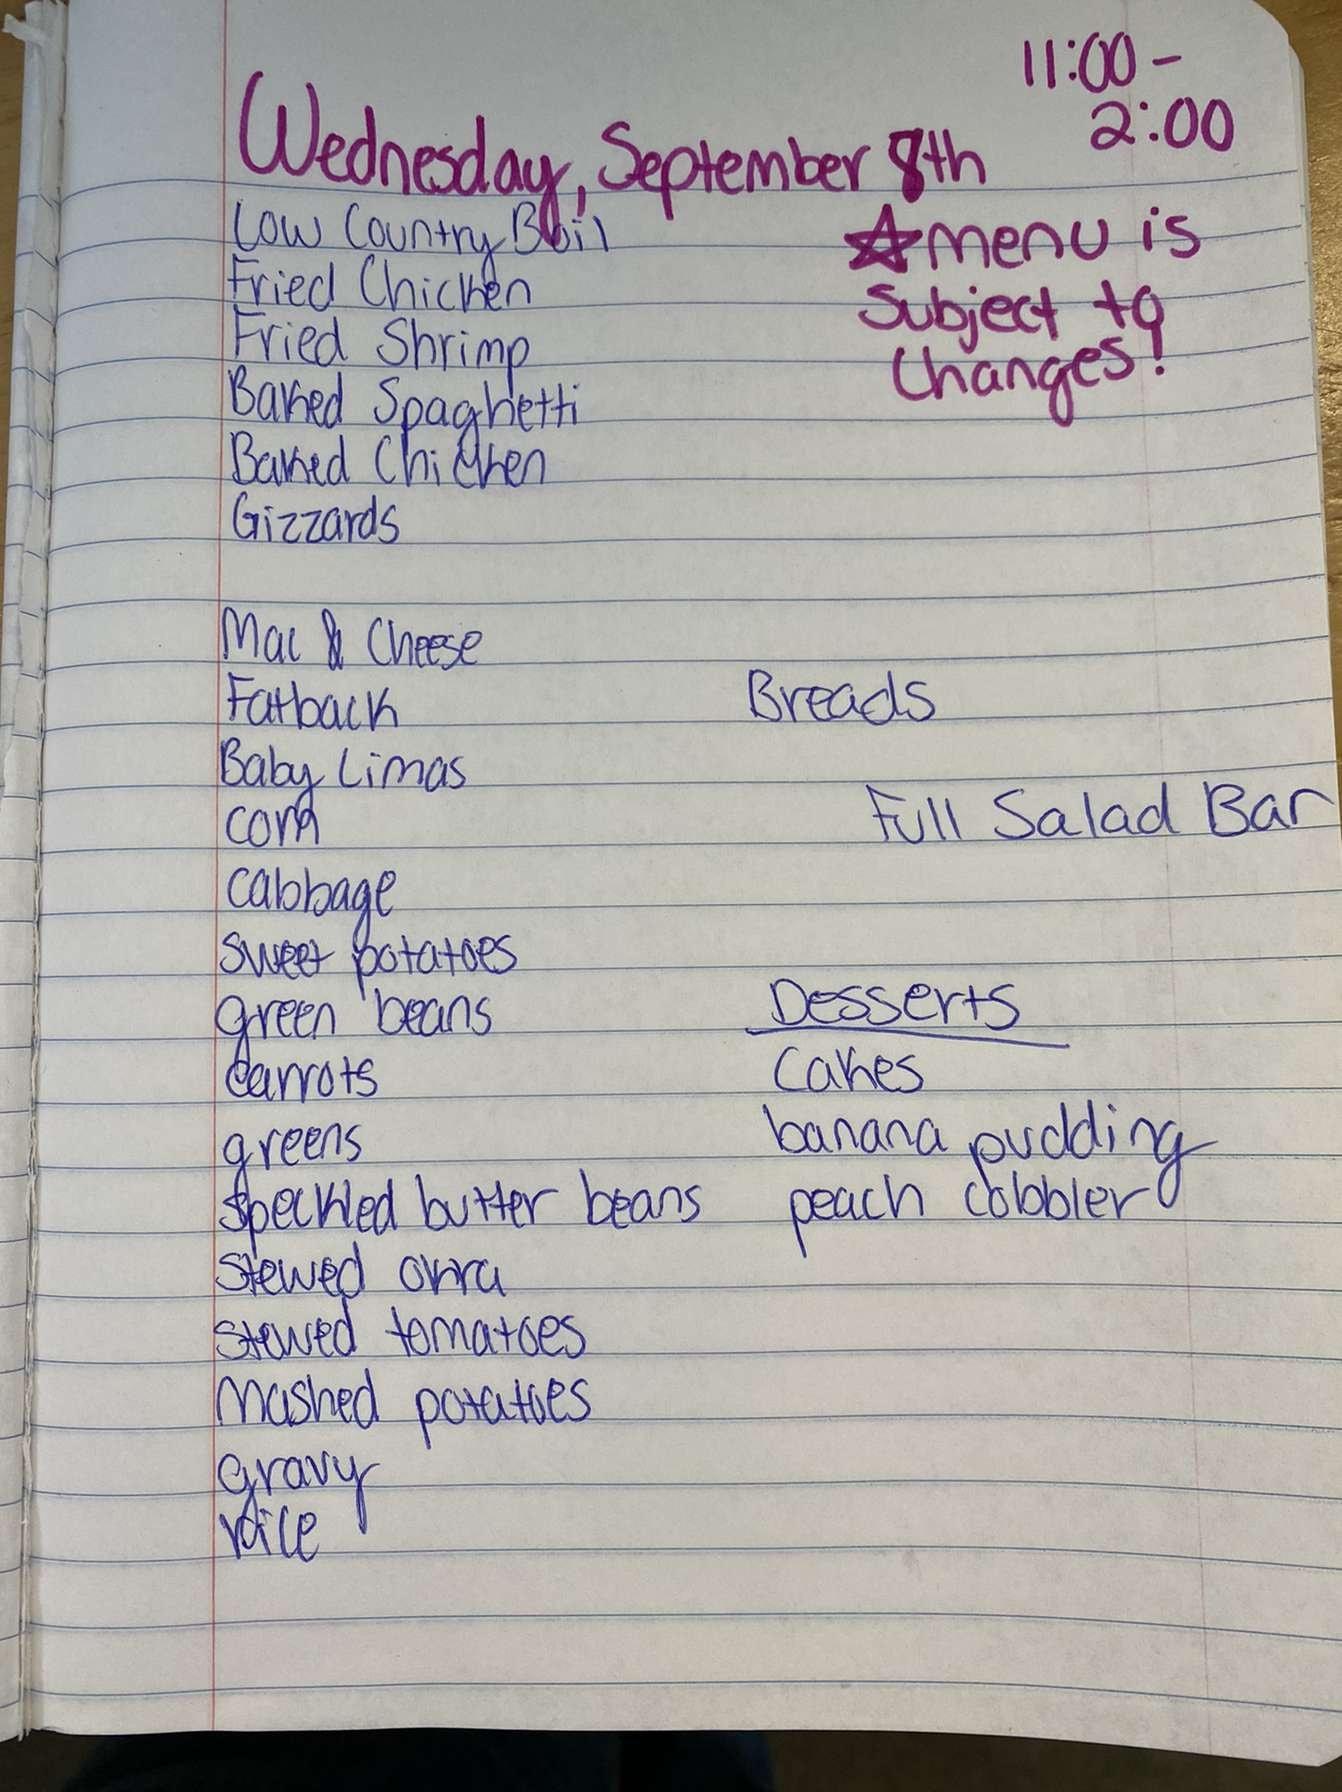 11:00 -
2:00
Wednesday, September 8th
☆ menu is
subject to
changes!
Low Country Boil
Fried Chicken
Fried Shrimp
Baked Spaghetti
Baked Chicken
Gizzards
Mac & Cheese
Fatback
Baby Limas
corn
cabbage
sweet potatoes
green beans
carrots
greens
speckled butter beans
stewed okra
stewed tomatoes
mashed potatoes
gravy
rice
Breads
Full Salad Bar
Desserts
Cakes
banana pudding
peach cobbler